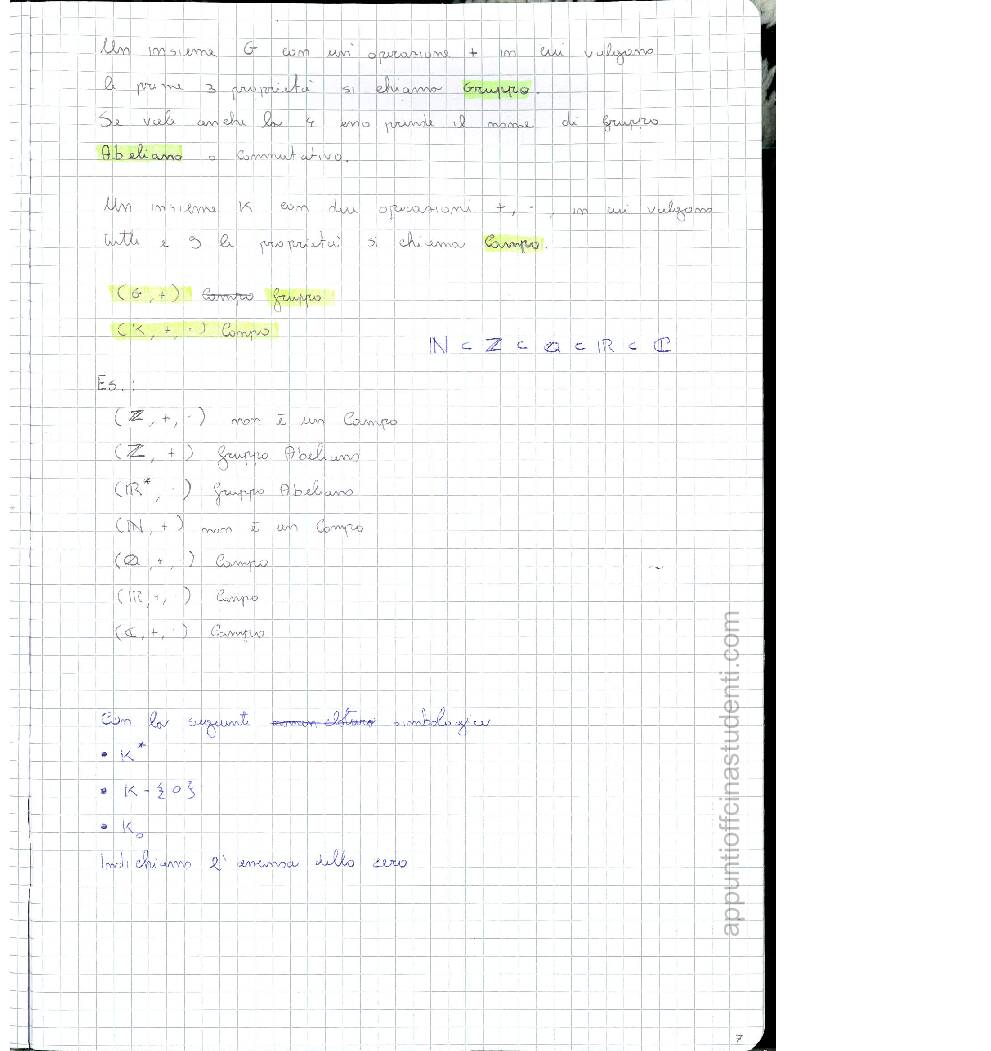 Un insieme G con un' operazione + in cui valgono
le prime 3 proprietà si chiama Gruppo.
Se vale anche la 4 essa prende il nome di gruppo
Abeliano o commutativo.
Un insieme K con due operazioni +, ·, in cui valgono
tutte e 9 le proprietà si chiama Campo.
(G, +) Campo gruppo
(K, +, ·) Campo
ℕ ⊂ ℤ ⊂ ℚ ⊂ ℝ ⊂ ℂ
Es.:
(ℤ, +, ·) non è un Campo
(ℤ, +) gruppo Abeliano
(ℝ*, ·) gruppo Abeliano
(ℕ, +) non è un Campo
(ℚ, +, ·) Campo
(ℝ, +, ·) Campo
(ℂ, +, ·) Campo
Con la seguente simbologia
• K*
• K-{0}
• K₀
Indichiamo l' assenza dello zero
appuntioffcinastudenti.com
7